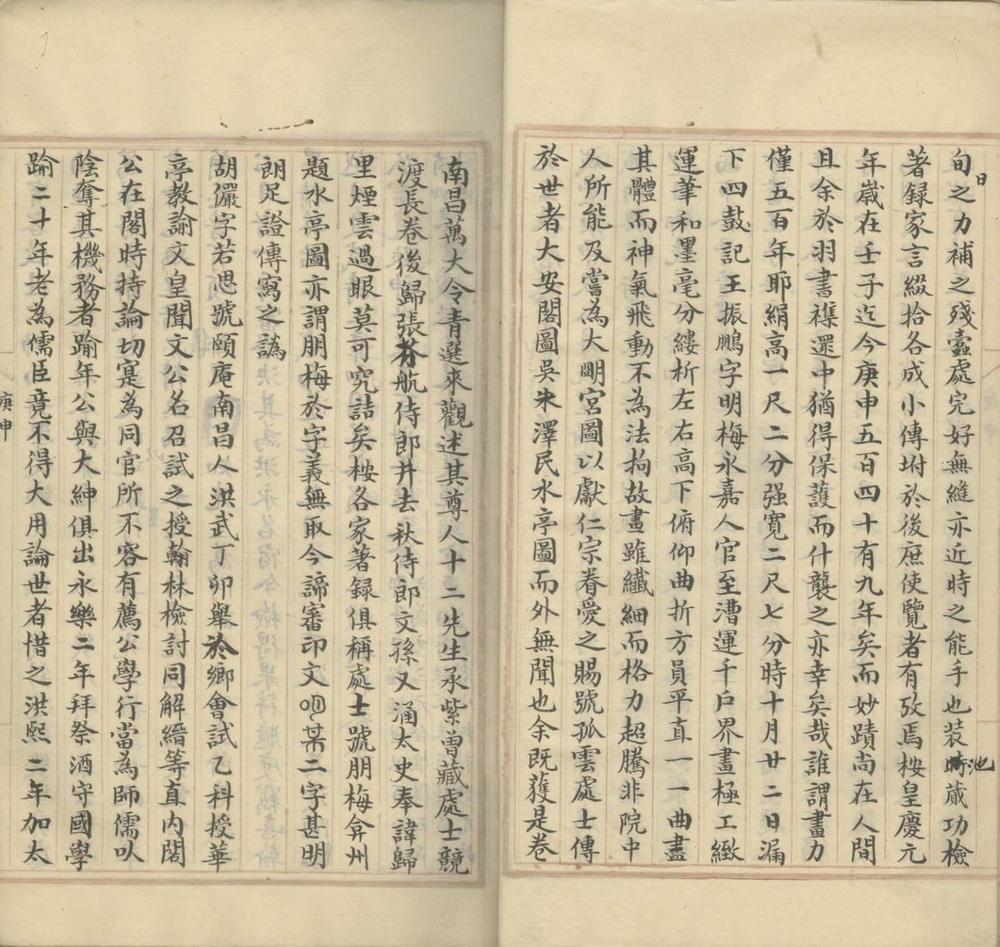 旬日之力補之殘蠧處完好無縫亦近時之能手也裝池蕆功檢
著録家言綴拾各成小傳坿於後庶使覽者有攷焉桉皇慶元
年嵗在壬子迄今庚申五百四十有九年矣而妙蹟尚在人間
且余於羽書襍遝中猶得保護而什襲之亦幸矣哉誰謂畫力
僅五百年耶絹高一尺二分强寬二尺七分時十月廿二日漏
下四鼓記王振鵬字明梅永嘉人官至漕運千户界畫極工緻
運筆和墨毫分縷析左右高下俯仰曲折方員平直一一曲盡
其體而神氣飛動不為法拘故畫雖纖細而格力超騰非院中
人所能及嘗為大明宮圖以獻仁宗眷愛之賜號孤雲處士傳
於世者大安閣圖吳朱澤民水亭圖而外無聞也余既獲是卷
南昌萬大令青選來觀述其尊人十二先生承紫曽藏處士競
渡長卷後歸張芥航侍郎井去秋侍郎文孫又涵太史奉諱歸
里煙雲過眼莫可究詰矣桉各家著録俱稱處士號朋梅弇州
題水亭圖亦謂朋梅於字義無取今諦審印文朙某二字甚明
朗足證傳寫之譌
胡儼字若思號頤庵南昌人洪武丁卯舉於鄉會試乙科授華
亭教諭文皇聞文公名召試之授翰林檢討同解縉等直内閣
公在閣時持論切寔為同官所不容有薦公學行當為師儒以
陰奪其機務者踰年公與大紳俱出永樂二年拜祭酒守國學
踰二十年老為儒臣竟不得大用論世者惜之洪熙二年加太
庚申